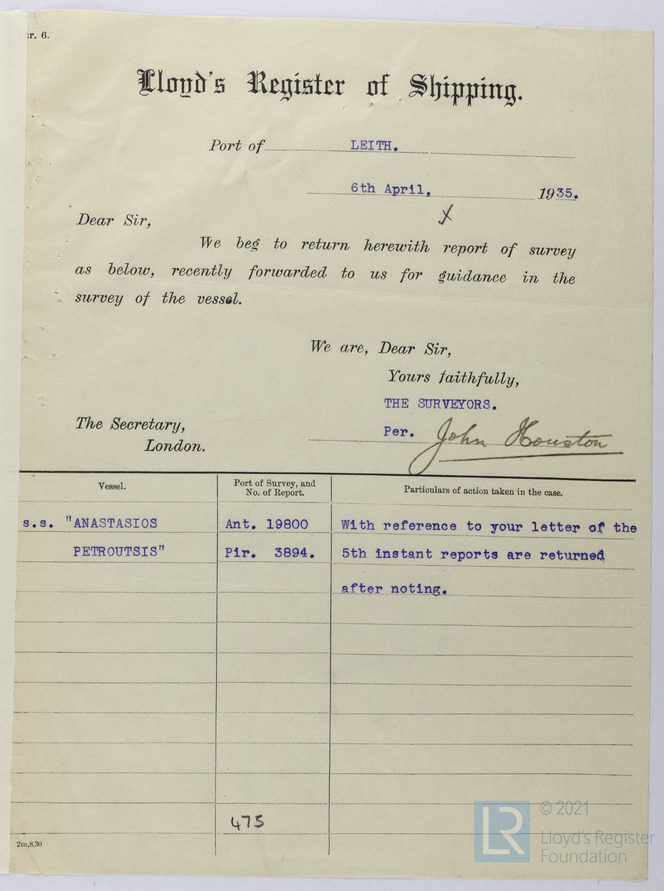 r. 6.
Lloyd's Register of Shipping.
Port of LEITH.
6th April, 1935.
Dear Sir,
We beg to return herewith report of survey
as below, recently forwarded to us for guidance in the
survey of the vessel.
We are, Dear Sir,
Yours faithfully,
THE SURVEYORS.
The Secretary,
London.
Per. John Houston
Vessel. Port of Survey, and No. of Report. Particulars of action taken in the case.
s.s. "ANASTASIOS Ant. 19800 With reference to your letter of the
PETROUTSIS" Pir. 3894. 5th instant reports are returned
after noting.
475
2m,8.30
© 2021
LR Lloyd's Register
Foundation